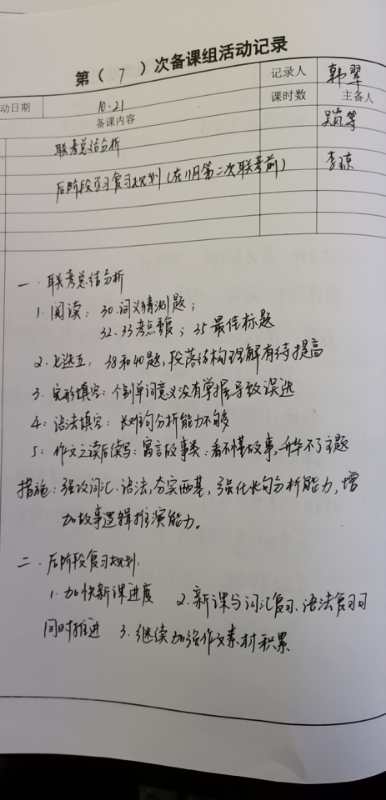 第（ 7 ）次备课组活动记录
动日期 10.21 记录人 韩翠
备课内容 课时数 主备人
联考总结分析
后阶段复习规划（在11月第二次联考前） 李琼
一、联考总结分析
1. 阅读：30.词义猜测题；
32.33考点； 35最佳标题
2. 七选五，38和40题，段落结构理解有待提高
3. 完形填空：个别单词意义没有掌握导致误选
4. 语法填空：长难句分析能力不够
5. 作文之读后续写：寓言故事类：看不懂故事，升华不了主题
措施：强设词汇、语法，夯实两基，强化长句分析能力，增
加故事逻辑推演能力。
二、后阶段复习规划
1. 加快新课进度 2. 新课与词汇复习、语法复习可
同时推进 3. 继续加强作文素材积累